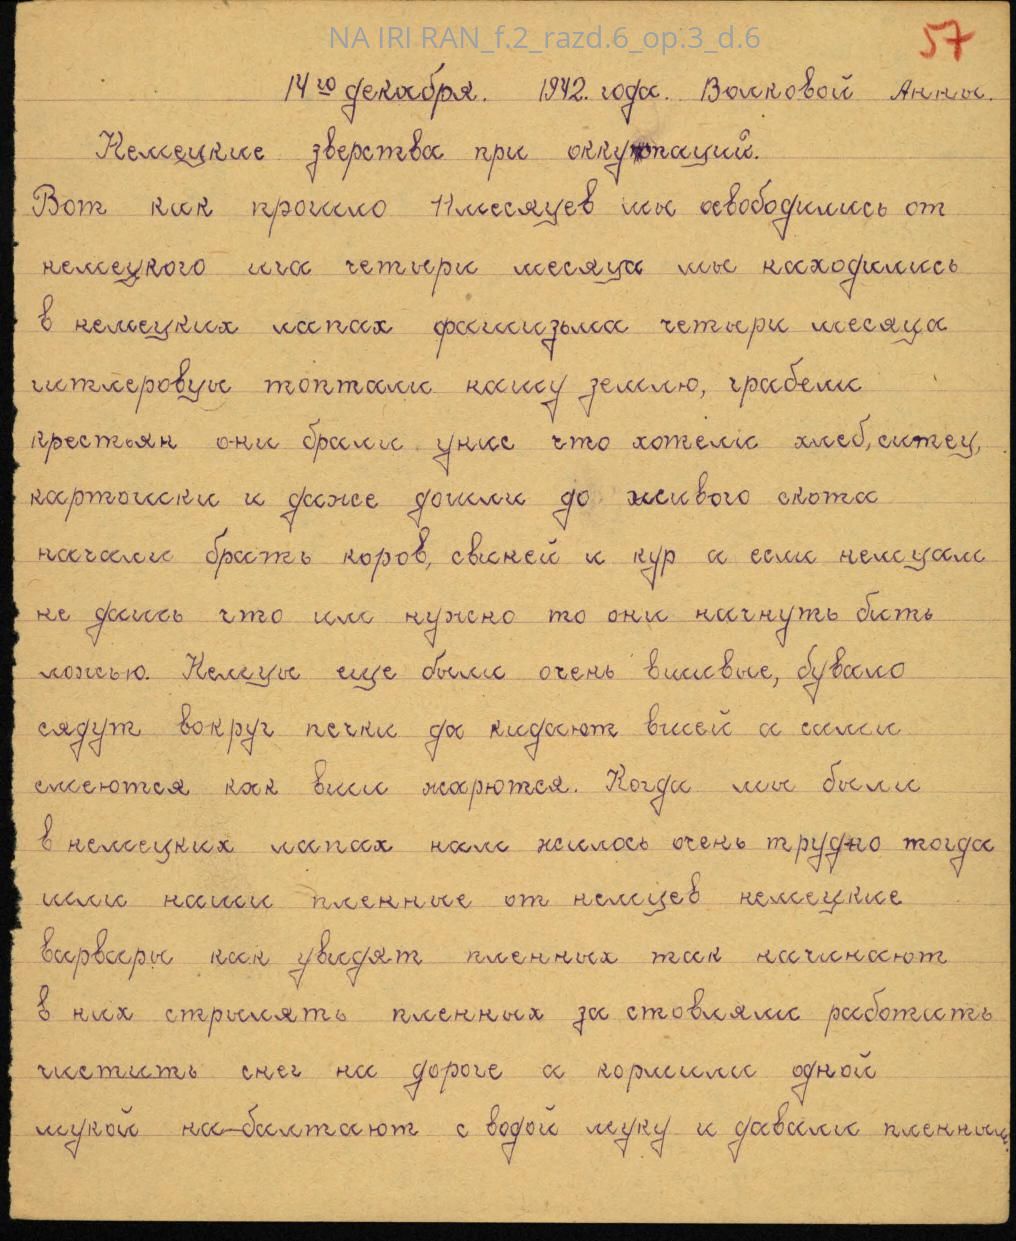 NA IRI RAN_f.2_razd.6_op.3_d.6
57
14го декабря. 1942. года. Волковой Анны.
Немецкие зверства при оккупации.
Вот как прошло 11 месяцев мы освободились от
немецкого ига четыри месяца мы находились
в немецких лапах фашизьма четыри месяца
гитлеровцы топтали нашу землю, грабели
крестьян они брали у них что хотели хлеб, ситец,
картошки и даже дошли до живого скота
начали брать коров, свиней и кур а если немцам
не дашь что им нужно то они начнуть бить
ложью. Немцы еще были очень вшивые, бувало
сядут вокруг печки да кидают вшей а сами
смеются как вши жарются. Когда мы были
в немецких лапах нам жилось очень трудно тогда
шли наши пленные от немцев немецкие
варвары как увидят пленных так начинают
в них стрылять пленных за стовляли работить
чистить снег на дороге а кормили одной
мукой на-балтают с водой муку и давали пленным.